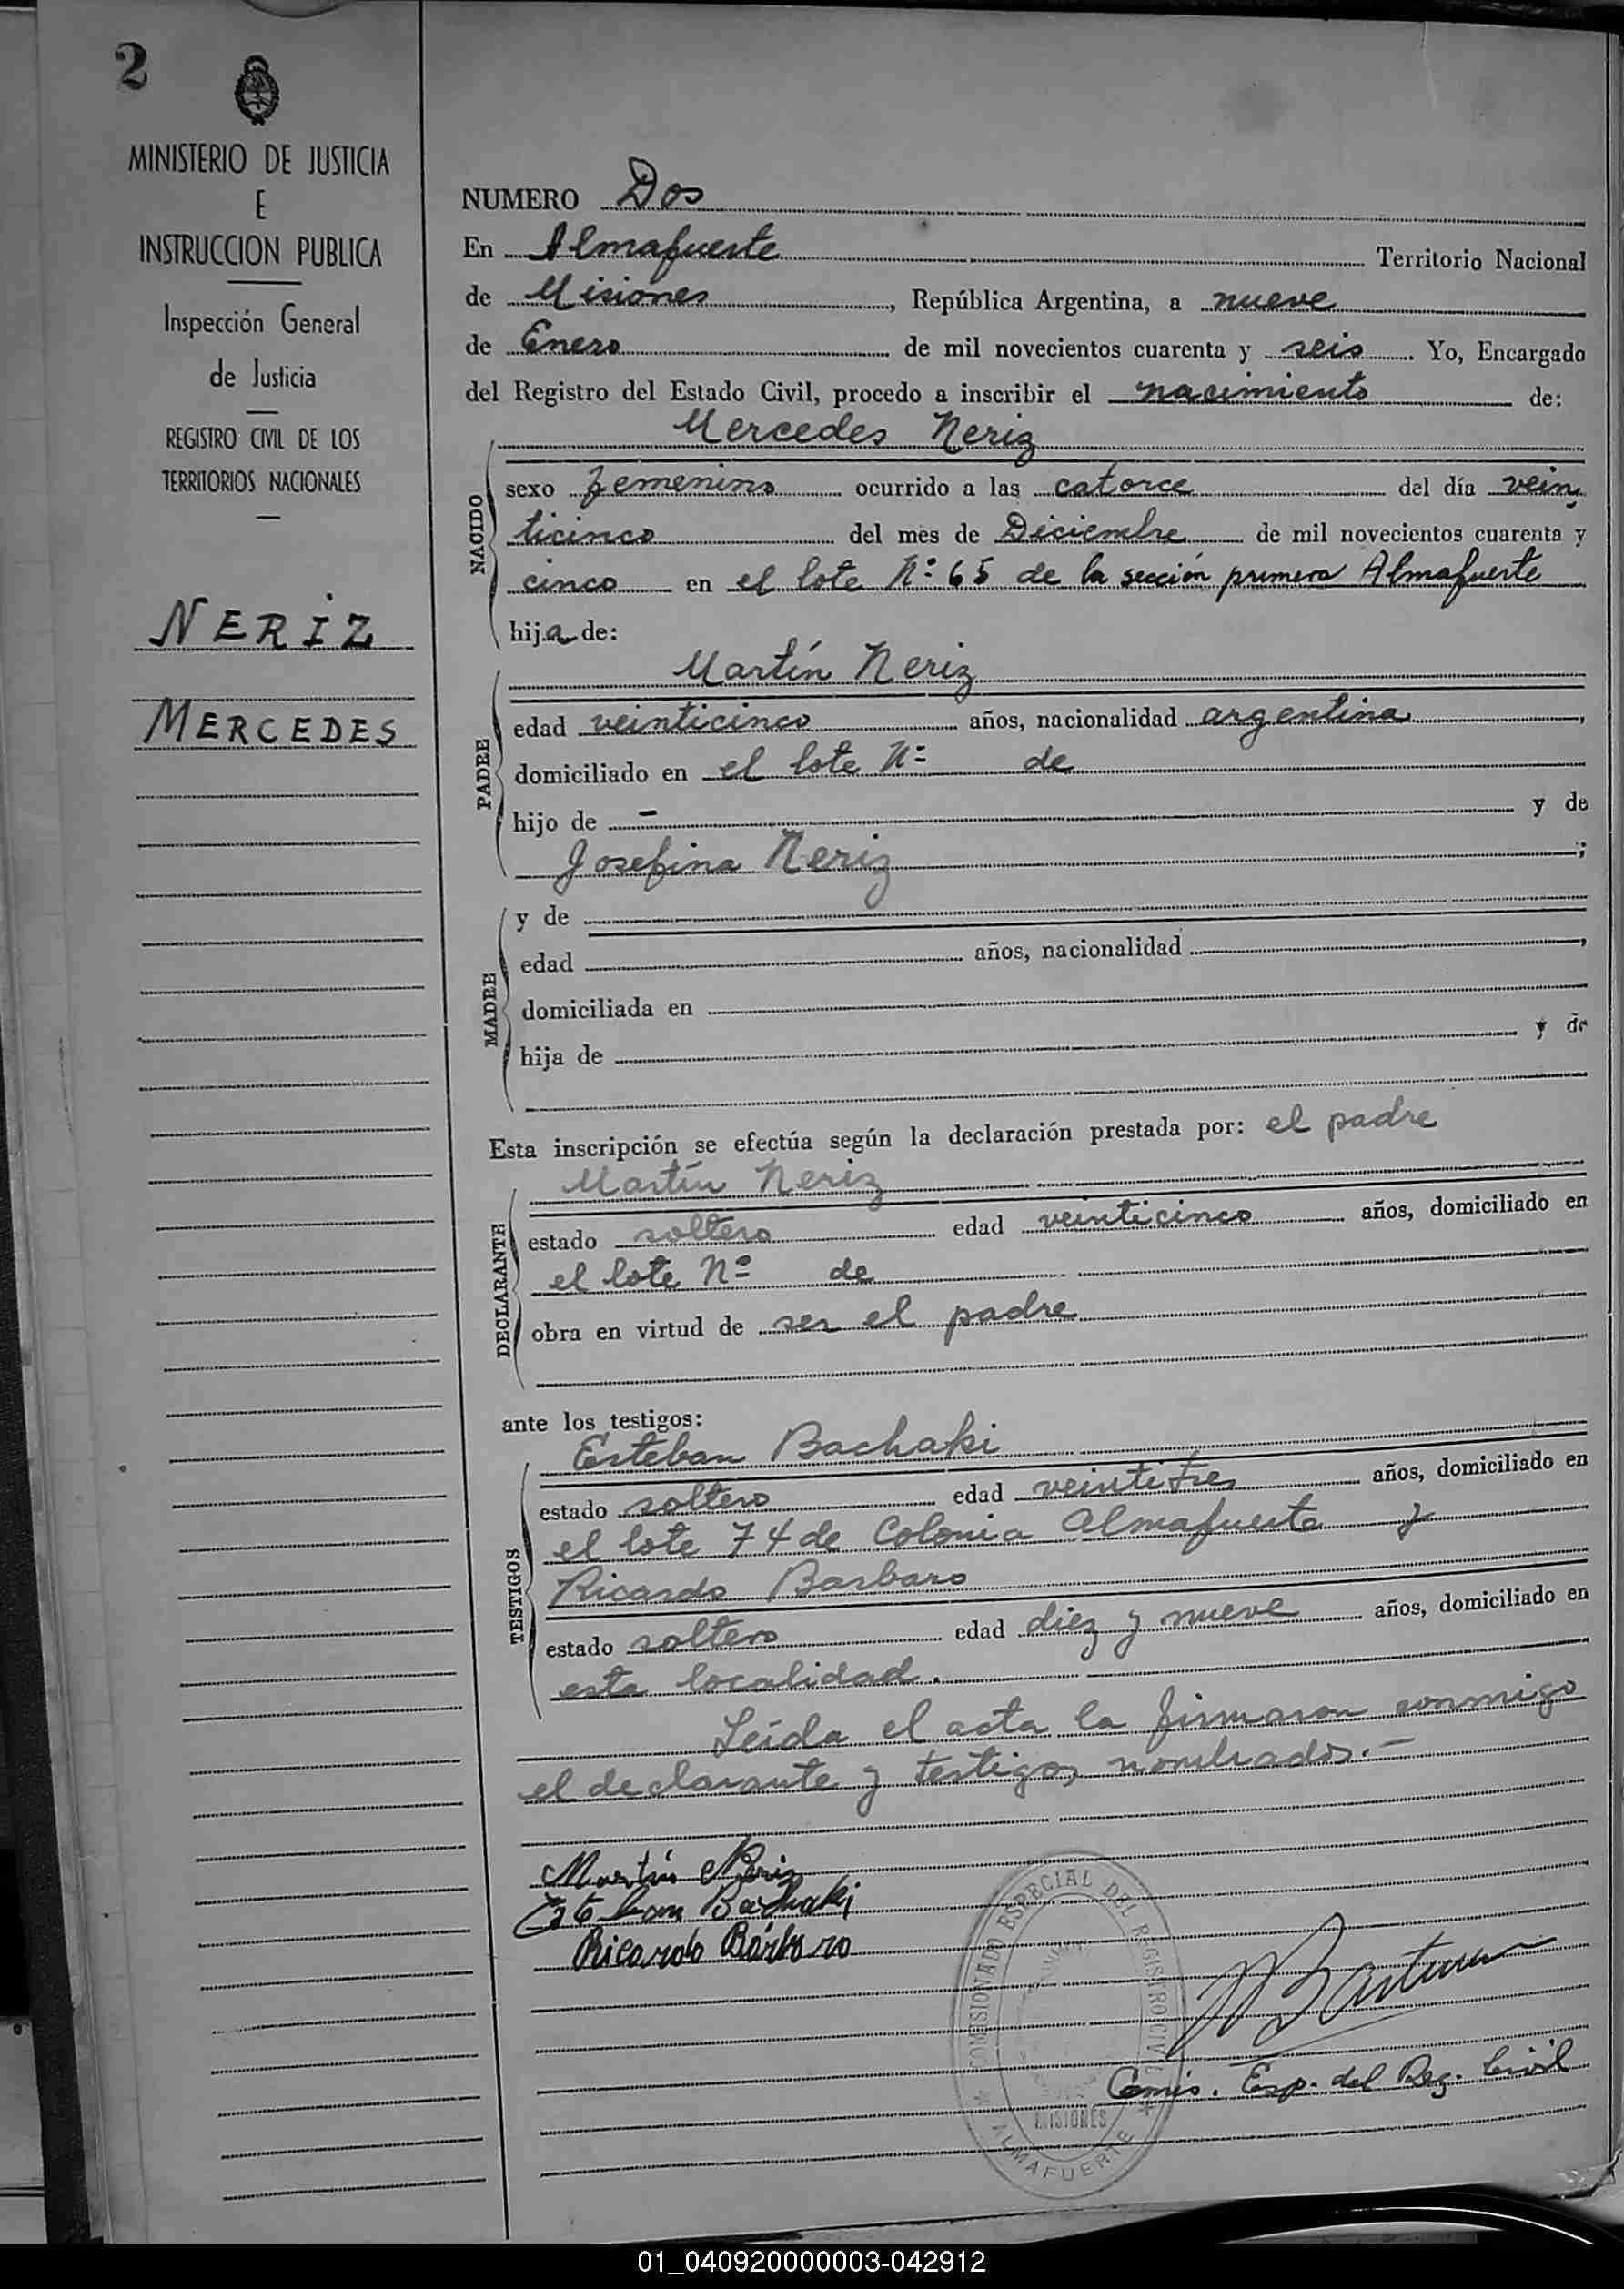 2
MINISTERIO DE JUSTICIA
E
INSTRUCCION PUBLICA
Inspección General
de Justicia
REGISTRO CIVIL DE LOS
TERRITORIOS NACIONALES
NERIZ
MERCEDES
NUMERO Dos
En Almafuerte Territorio Nacional
de Misiones, República Argentina, a nueve
de Enero de mil novecientos cuarenta y seis. Yo, Encargado
del Registro del Estado Civil, procedo a inscribir el nacimiento de:
Mercedes Neriz
NACIDO
sexo femenino ocurrido a las catorce del día vein
ticinco del mes de Diciembre de mil novecientos cuarenta y
cinco en el lote Nº 65 de la sección primera Almafuerte
hija de:
Martín Neriz
PADRE
edad veinticinco años, nacionalidad argentina,
domiciliado en el lote Nº de
hijo de - y de
Josefina Neriz;
MADRE
y de
edad años, nacionalidad,
domiciliada en
hija de y de
Esta inscripción se efectúa según la declaración prestada por: el padre
Martín Neriz
DECLARANTE
estado soltero edad veinticinco años, domiciliado en
el lote Nº de
obra en virtud de ser el padre
ante los testigos:
Esteban Bachaki
TESTIGOS
estado soltero edad veintitres años, domiciliado en
el lote 74 de Colonia Almafuerte y
Ricardo Barbaro
estado soltero edad diez y nueve años, domiciliado en
esta localidad.
Leída el acta la firmaron conmigo
el declarante y testigos nombrados.-
Martín Neriz
Esteban Bachaki
Ricardo Bárbaro
COMISIONADO ESPECIAL DEL REGISTRO CIVIL
MISIONES
ALMAFUERTE
Comis. Esp. del Reg. Civil
01_040920000003-042912